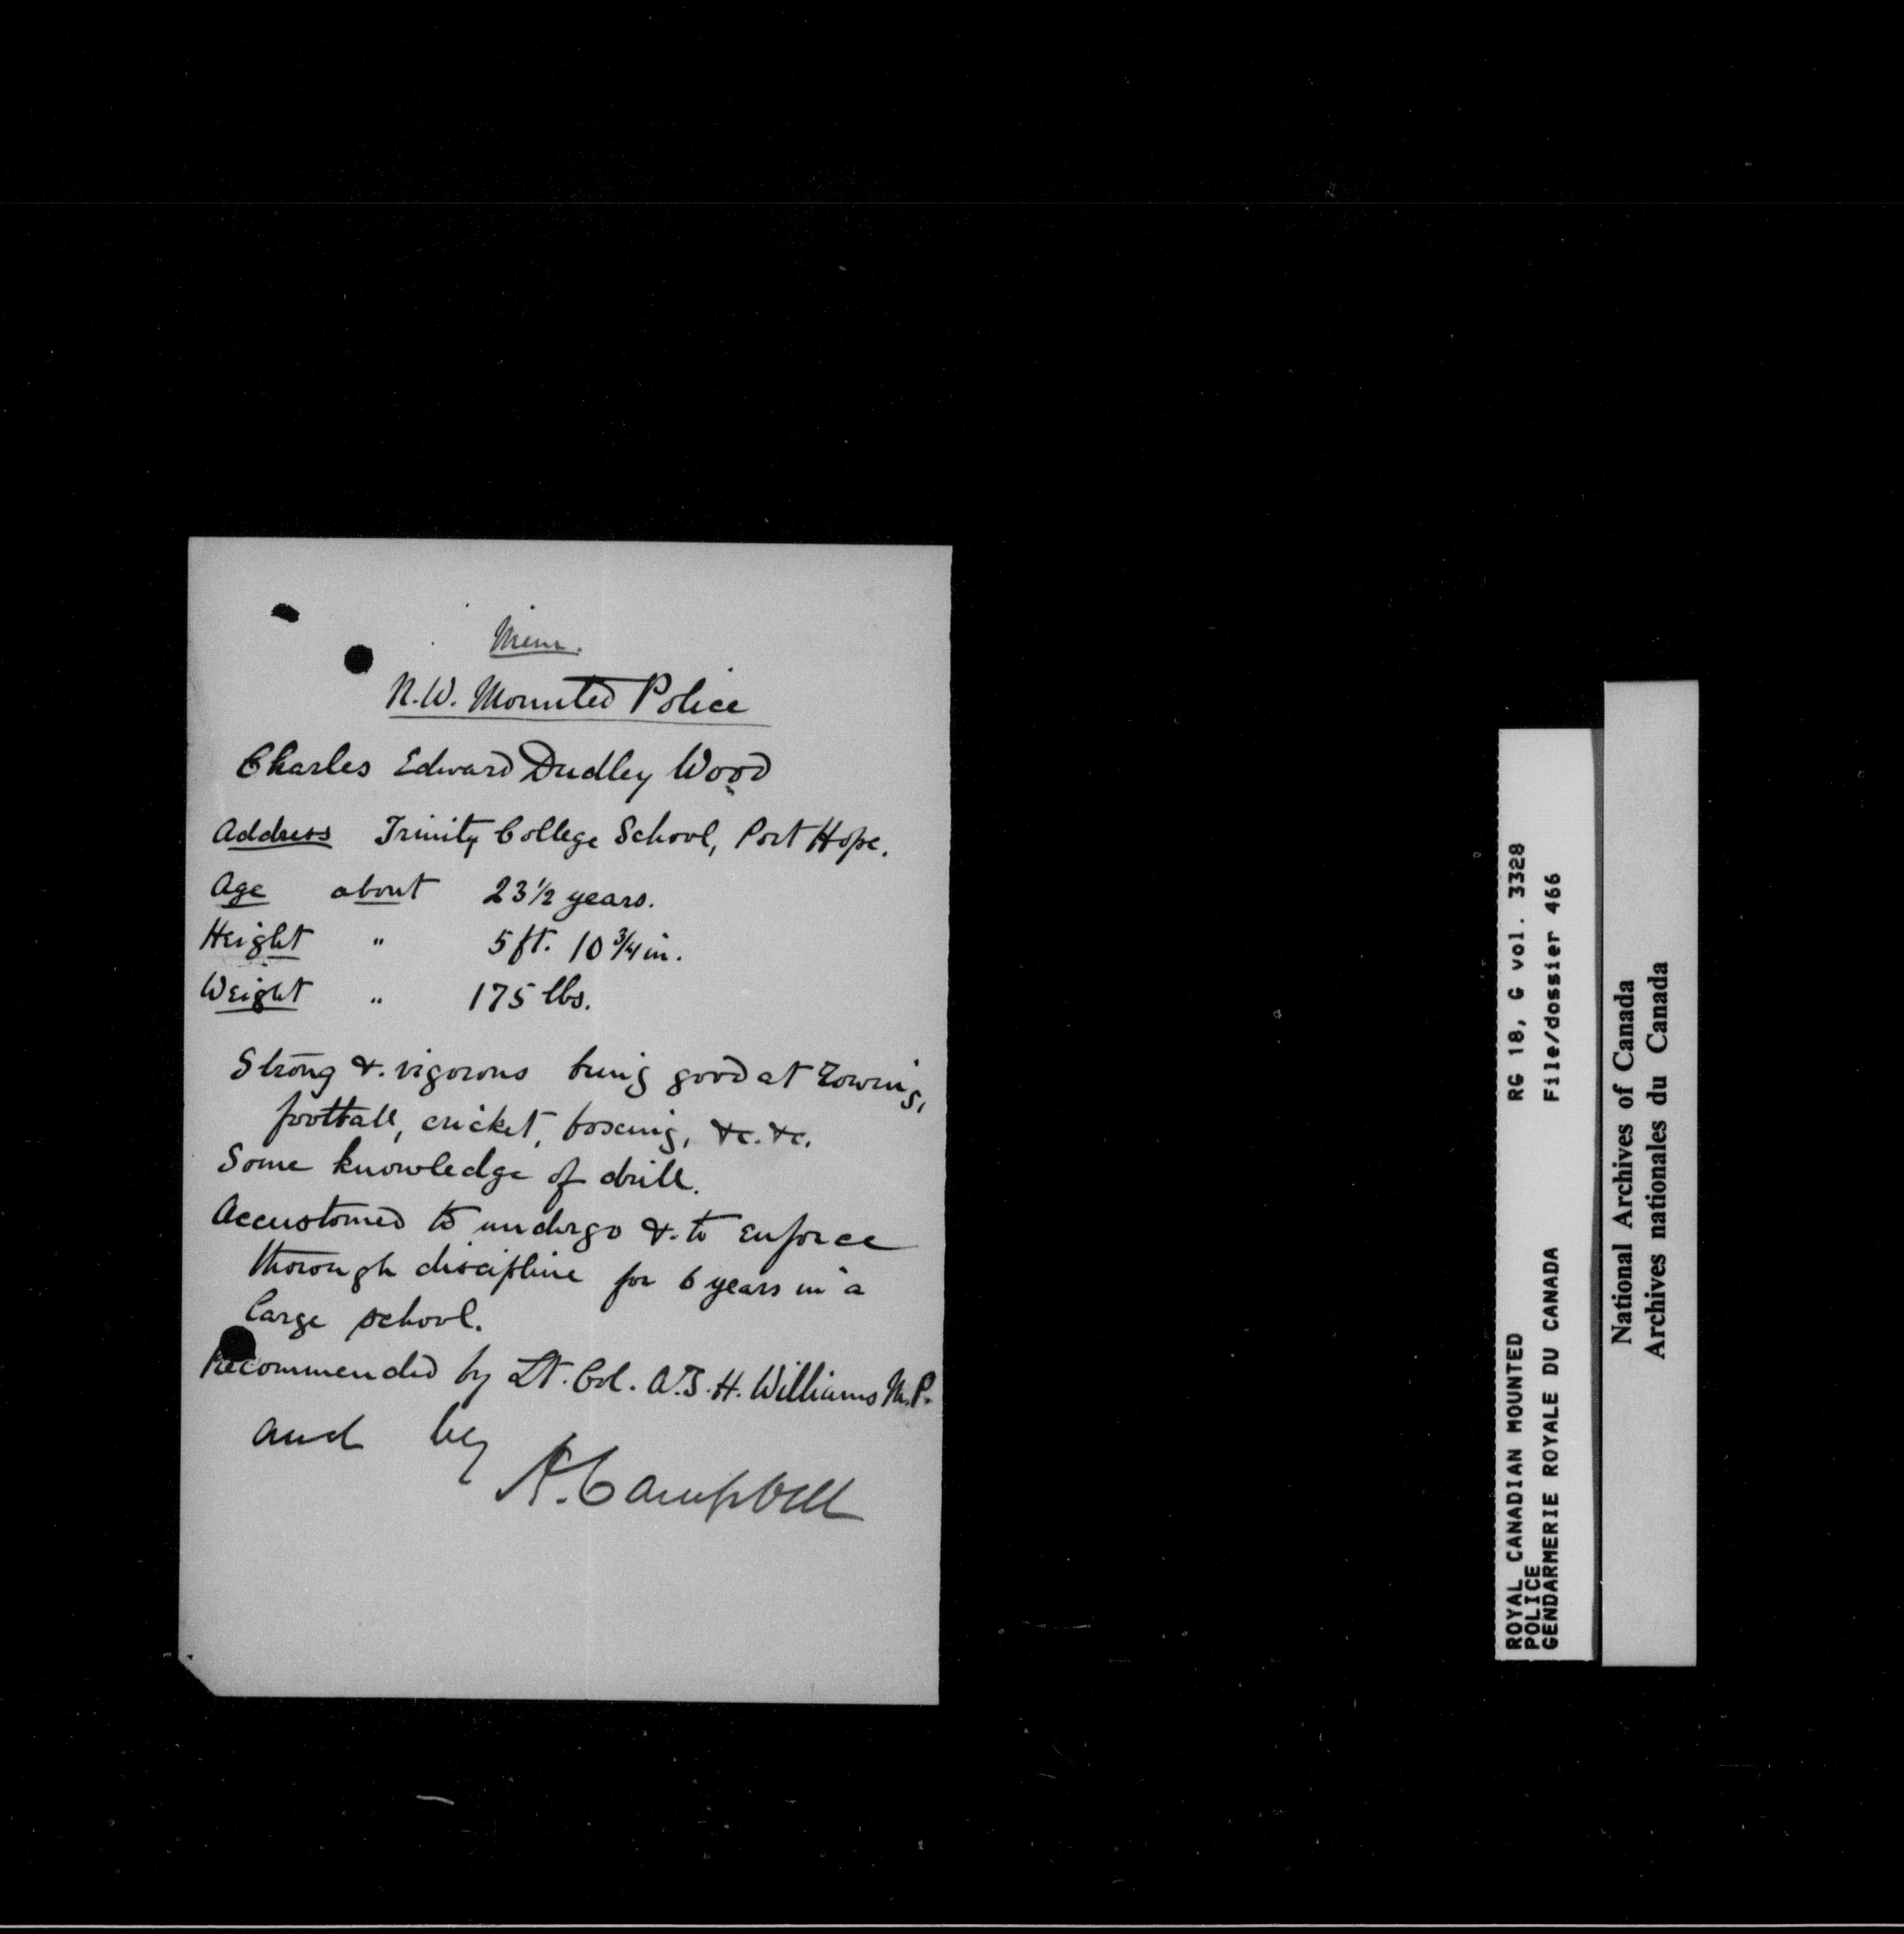 Mem.
N.W. Mounted Police
Charles Edward Dudley Wood
Address Trinity College School, Port Hope.
Age about 23½ years.
Height " 5 ft. 10 ¾ in.
Weight " 175 lbs.
Strong & vigorous being good at rowing,
football, cricket, boxing, &c. &c.
Some knowledge of drill.
Accustomed to undergo & to enforce
thorough discipline for 6 years in a
large school.
Recommended by Lt. Col. A.T.H. Williams M.P.
and by
A. Campbell
ROYAL CANADIAN MOUNTED RG 18, G vol. 3328
POLICE
GENDARMERIE ROYALE DU CANADA File/dossier 466
National Archives of Canada
Archives nationales du Canada